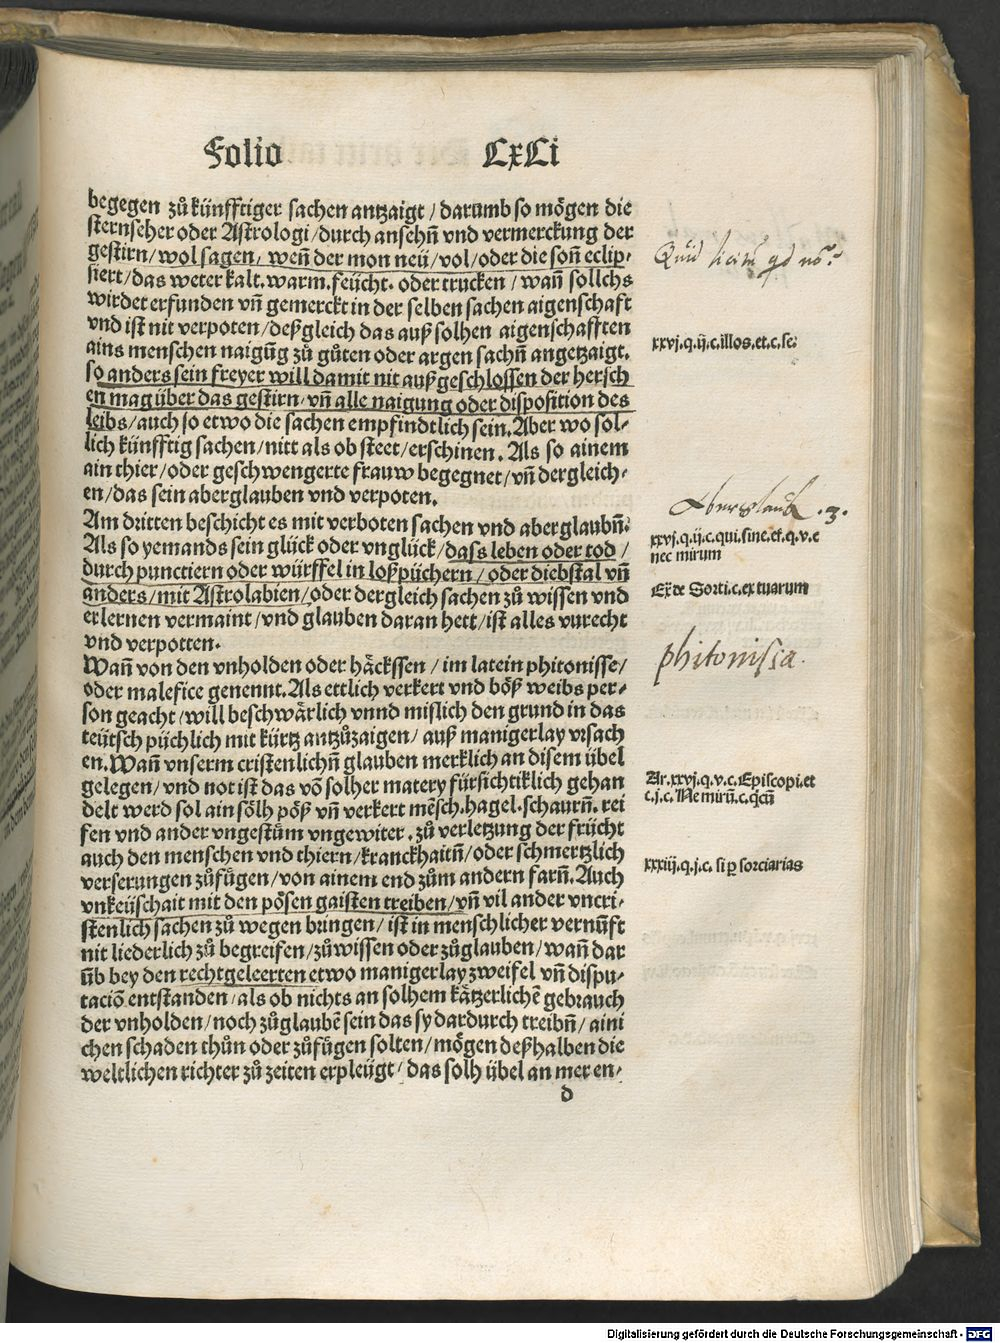 Folio CxCi
begegen zů künfftiger sachen antzaigt / darumb so mögen die
sternseher oder Astrologi / durch ansehñ vnd vermerckung der
gestirn / wol sagen / weñ der mon neü / vol / oder die soñ eclip⸗
siert / das weter kalt. warm. feücht. oder trucken / wañ sollchs
wirdet erfunden vñ gemerckt in der selben sachen aigenschaft
vnd ist nit verpoten / deßgleich das auß solhen aigenschafften
ains menschen naigũg zů gůten oder argen sachñ angetzaigt.
so anders sein freyer will damit nit außgeschlossen der hersch
en mag über das gestirn / vñ alle naigung oder disposition des
leibs / auch so etwo die sachen empfindtlich sein. Aber wo sol⸗
lich künfftig sachen / nitt als ob steet / erschinen. Als so ainem
ain thier / oder geschwengerte frauw begegnet / vñ dergleich⸗
en / das sein aberglauben vnd verpoten.
Am dritten beschicht es mit verboten sachen vnd aberglaubñ.
Als so yemands sein glück oder vnglück / dass leben oder tod /
durch punctiern oder würffel in loßpüchern / oder diebstal vñ
anders / mit Astrolabien / oder dergleich sachen zů wissen vnd
erlernen vermaint / vnd glauben daran hett / ist alles vnrecht
vnd verpotten.
Wañ von den vnholden oder häckssen / im latein phitonisse /
oder malefice genennt. Als ettlich verkert vnd böß weibs per⸗
son geacht / will beschwärlich vnnd mislich den grund in das
teütsch püchlich mit kürtz antzůzaigen / auß manigerlay vrsach
en. Wañ vnserm cristenlichñ glauben merklich an disem übel
gelegen / vnd not ist das võ solher matery fürsichtiklich gehan
delt werd sol ain sölh pöß vñ verkert mẽsch. hagel. schaurñ. rei
fen vnd ander vngestüm vngewiter. zů verletzung der frücht
auch den menschen vnd thiern / kranckhaitñ / oder schmertzlich
verserungen zůfügen / von ainem end zům andern farñ. Auch
vnkeüschait mit den pösen gaisten treiben / vñ vil ander vncri⸗
stenlich sachen zů wegen bringen / ist in menschlicher vernũft
nit liederlich zů begreifen / zů wissen oder zůglauben / wañ dar
ũb bey den rechtgeleerten etwo manigerlay zweifel vñ dispu⸗
taciõ entstanden / als ob nichts an solhem kätzerlichẽ gebrauch
der vnholden / noch zůglaubẽ sein das sy dardurch treibñ / aini
chen schaden thůn oder zůfügen solten / mögen deßhalben die
weltlichen richter zů zeiten erpleügt / das solh übel an mer en⸗
d
xxvj. q. ij. c. illos. et. c. se.
Aberglaub .3.
xxvj. q. ij. c. qui. sine. et. q. v. e
nec mirum
Ex̃ de Sorti. c. ex tuarum
phitonissa.
Ar. xxvj. q. v. c. Episcopi. et
c. j. c. Ne mirũ. c. q̃cũ
xxxiij. q. j. c. si p̱ sorciarias
Digitalisierung gefördert durch die Deutsche Forschungsgemeinschaft - DFG